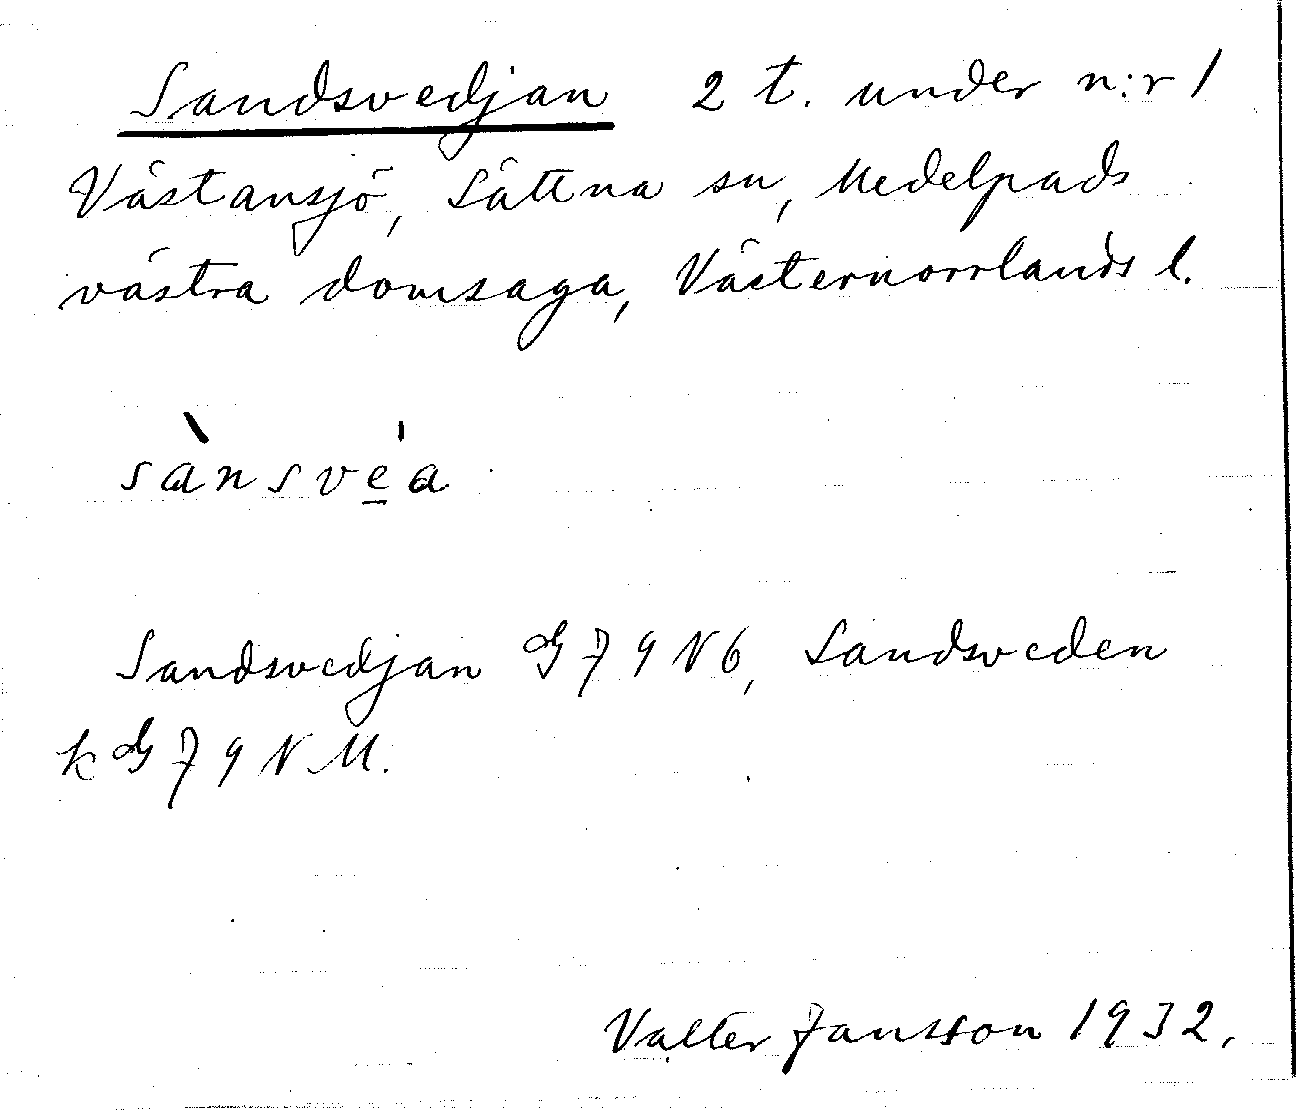 Sandsvedjan 2 t. under n:r 1
Västansjö, Sättna sn, Medelpads
västra domsaga, Västernorrlands l.
sànsvé̲a
Sandsvedjan G79N6, Sandsveden
k G79NM.
Valter Jansson 1932.